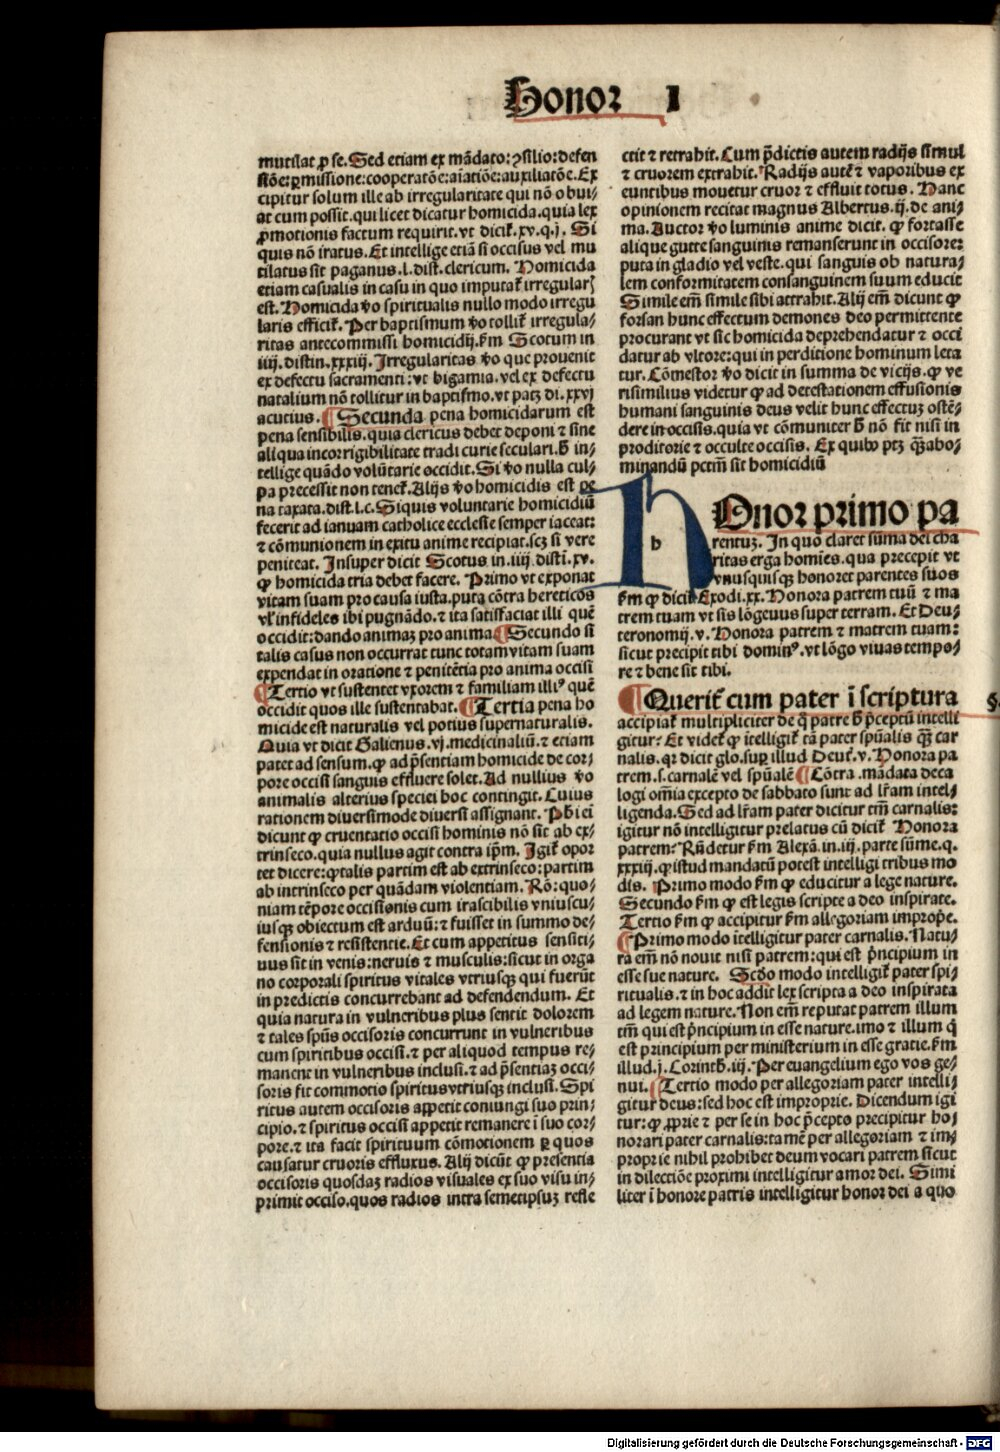 Honor I
mutilat ꝓ se. Sed etiam ex mādato: ↄsilio: defen
siōe: ꝑmissione: cooperatōe: aiatiōe: auxiliatōe. Ex
cipitur solum ille ab irregularitate qui nō obui⸗
at cum possit. qui licet dicatur homicida. quia lex
ꝓmotionis factum requirit. vt dicit᷑. xv. q. j. Si
quis nō iratus. Et intellige etiā si occisus vel mu
tilatus sit paganus. l. dist. clericum. Homicida
etiam casualis in casu in quo imputat᷑ irregularꝭ
est. Homicida ꝟo spiritualis nullo modo irregu
laris efficit᷑. Per baptismum ꝟo tollit᷑ irregula⸗
ritas antecommissi homicidij. ẜm Scotum in
iiij. distin. xxxiij. Irregularitas ꝟo que prouenit
ex defectu sacramenti: vt bigamia. vel ex defectu
natalium nō tollitur in baptismo. vt patꝫ di. xxvj
acutius. ¶ Secunda pena homicidarum est
pena sensibilis. quia clericus debet deponi ⁊ sine
aliqua incorrigibilitate tradi curie seculari. ħ in⸗
tellige quādo volūtarie occidit. Si ꝟo nulla cul⸗
pa precessit non tenet᷑. Alijs ꝟo homicidis est pe
na taxata. dist. l. c. Siquis voluntarie homicidiū
fecerit ad ianuam catholice ecclesie semper iaceat:
⁊ cōmunionem in exitu anime recipiat. scꝫ si vere
peniteat. Insuper dicit Scotus in. iiij. disti. xv.
ꝙ homicida tria debet facere. Primo vt exponat
vitam suam pro causa iusta. puta cōtra hereticos
vl᷑ infideles ibi pugnādo. ⁊ ita satisfaciat illi quē
occidit: dando animaꝫ pro anima ¶ Secundo si
talis casus non occurrat tunc totam vitam suam
expendat in oratione ⁊ penitētia pro anima occisi
¶ Tertio vt sustentet vxorem ⁊ familiam illiꝰ quē
occidit quos ille sustentabat. ¶ Tertia pena ho
micide est naturalis vel potius supernaturalis.
Quia vt dicit Galienus. vj. medicinaliū. ⁊ etiam
patet ad sensum. ꝙ ad p̄sentiam homicide de cor⸗
pore occisi sanguis effluere solet. Ad nullius ꝟo
animalis alterius speciei hoc contingit. Cuius
rationem diuersimode diuersi assignant. Phici
dicunt ꝙ cruentatio occisi hominis nō sit ab ex⸗
trinseco. quia nullus agit contra ip̄m. Igit᷑ opor
tet dicere: ꝙ talis partim est ab extrinseco: partim
ab intrinseco per quādam violentiam. Rō: quo⸗
niam tēpore occisionis cum irascibilis vniuscu⸗
iusqꝫ obiectum est arduū: ⁊ fuisset in summo de⸗
fensionis ⁊ resistentie. Et cum appetitus sensiti⸗
uus sit in venis: neruis ⁊ musculis: sicut in orga
no corporali spiritus vitales vtriusqꝫ qui fuerūt
in predictis concurrebant ad defendendum. Et
quia natura in vulneribus plus sentit dolorem
⁊ tales spūs occisoris concurrunt in vulneribus
cum spiritibus occisi. ⁊ per aliquod tempus re⸗
manent in vulneribus inclusi. ⁊ ad p̄sentiaꝫ occi⸗
soris fit commotio spiritus vtriusqꝫ inclusi. Spi
ritus autem occisoris appetit coniungi suo prin⸗
cipio. ⁊ spiritus occisi appetit remanere ī suo cor⸗
pore. ⁊ ita facit spirituum cōmotionem ꝑ quos
causatur cruoris effluxus. Alij dicūt ꝙ presentia
occisoris quosdaꝫ radios visuales ex suo visu in⸗
primit occiso. quos radios intra semetipsuꝫ refle
ctit ⁊ retrahit. Cum p̄dictis autem radijs simul
⁊ cruorem extrahit. Radijs autē ⁊ vaporibus ex
euntibus mouetur cruor ⁊ effluit totus. Hanc
opinionem recitat magnus Albertus. ij. de ani⸗
ma. Auctor ꝟo luminis anime dicit. ꝙ fortasse
alique gutte sanguinis remanserunt in occisore:
puta in gladio vel veste. qui sanguis ob natura⸗
lem conformitatem consanguinem suum educit
Simile em̄ simile sibi attrahit. Alij em̄ dicunt ꝙ
forsan hunc effectum demones deo permittente
procurant vt sic homicida deprehendatur ⁊ occi
datur ab vltore: qui in perditione hominum leta
tur. Cōmestor ꝟo dicit in summa de vicijs. ꝙ ve
risimilius videtur ꝙ ad detestationem effusionis
humani sanguinis deus velit hunc effectuꝫ ostē⸗
dere in occisis. quia vt cōmuniter ħ nō fit nisi in
proditorie ⁊ occulte occisis. Ex quibꝰ ptꝫ q̄ꝫ abo⸗
minandū pctm̄ sit homicidiū
h
HOnor primo pa
rentuꝫ. In quo claret suma dei cha
ritas erga homīes. qua precepit vt
vnusquisqꝫ honoret parentes suos
ẜm ꝙ dicit᷑ Exodi. xx. Honora patrem tuū ⁊ ma
trem tuam vt sis lōgeuus super terram. Et Deu⸗
teronomij. v. Honora patrem ⁊ matrem tuam:
sicut precipit tibi dominꝰ. vt lōgo viuas tempo⸗
re ⁊ bene sit tibi.
¶ Querit᷑ cum pater ī scriptura
accipiat᷑ multipliciter de q̊ patre ħ p̄ceptū intelli
gitur? Et videt᷑ ꝙ ītelligit᷑ tā pater spūalis q̄ꝫ car
nalis. qr dicit glo. suꝑ illud Deut᷑. v. Honora pa
trem. s. carnalē vel spūalē ¶ Cōtra. mādata deca
logi om̄ia excepto de sabbato sunt ad lr̄am intel⸗
ligenda. Sed ad lr̄am pater dicitur tm̄ carnalis:
igitur nō intelligitur prelatus cū dicit᷑ Honora
patrem? Rūdetur ẜm Alexā. in. iij. parte sūme. q.
xxxiij. ꝙ istud mandatū potest intelligi tribus mo
dis. Primo modo ẜm ꝙ educitur a lege nature.
Secundo ẜm ꝙ est legis scripte a deo inspirate.
Tertio ẜm ꝙ accipitur ẜm allegoriam improp̄e.
¶ Primo modo ītelligitur pater carnalis. Natu⸗
ra em̄ nō nouit nisi patrem: qui est p̄ncipium in
esse sue nature. Scd̄o modo intelligit᷑ pater spi⸗
ritualis. ⁊ in hoc addit lex scripta a deo inspirata
ad legem nature. Non em̄ reputat patrem illum
tm̄ qui est p̄ncipium in esse nature. imo ⁊ illum q̇
est principium per ministerium in esse gratie. ẜm
illud. j. Corinth. iij. Per euangelium ego vos ge⸗
nui. ¶ Tertio modo per allegoriam pater intelli⸗
gitur deus: sed hoc est improprie. Dicendum igi
tur: ꝙ ꝓprie ⁊ per se in hoc p̄cepto precipitur ho⸗
norari pater carnalis: ta mē per allegoriam ⁊ im⸗
proprie nihil prohibet deum vocari patrem sicut
in dilectiōe proximi intelligitur amor dei. Simi
liter ī honore patris intelligitur honor dei a quo
§.
Digitalisierung gefördert durch die Deutsche Forschungsgemeinschaft - DFG